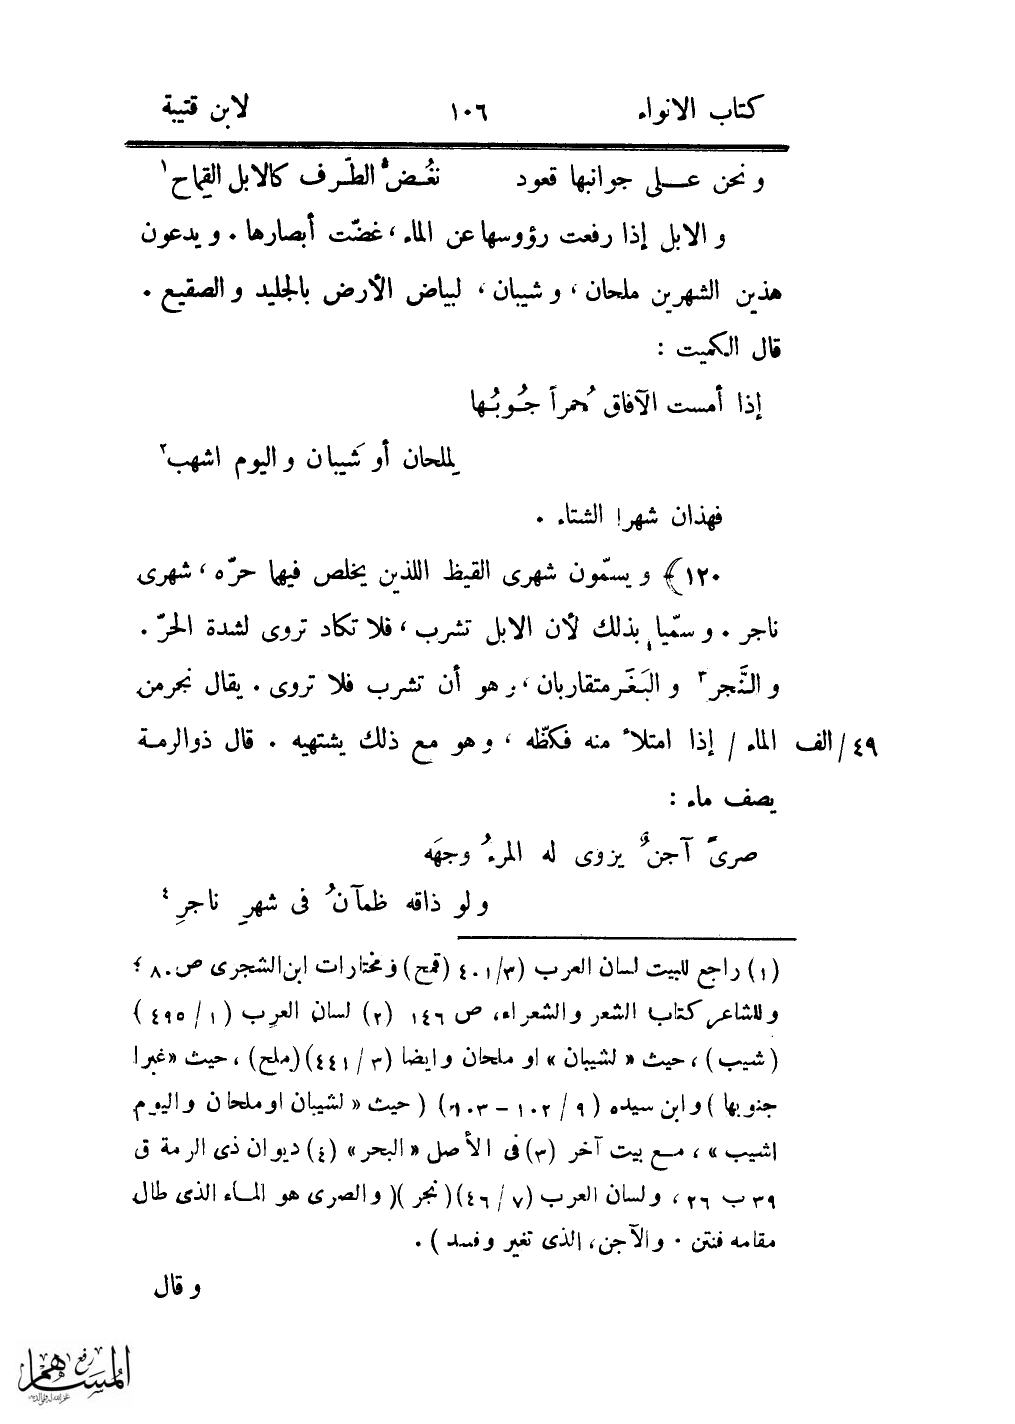 كتاب الانواء ١٠٦ لابن قتيبة
و نحن عــلى جوانبها قعود نغُـضُّ الطّـرف كالابل القِماح١
و الابل إذا رفعت رؤوسها عن الماء، غضّت أبصارها . و يدعون
هذين الشهرين ملحان، و شيبان، لبياض الأرض بالجليد و الصقيع .
قال الكميت :
إذا أمست الآفاق حُمراً جُـنوبُـها
لِملحان أو شَيبان و اليوم اشهب٢
فهذان شهرا الشتاء .
١٢٠﴾ و يسمّون شهرى القيظ اللذين يخلص فيها حرّه، شهرى
ناجر . و سمّيا بذلك لأن الابل تشرب، فلا تكاد تروى لشدة الحرّ .
و النَّجر٣ و البَغَر متقاربان، و هو أن تشرب فلا تروى . يقال نجر من
٤٩/الف الماء / إذا امتلأ منه فكظّه، و هو مع ذلك يشتهيه . قال ذوالرمـة
يصف ماء :
صرىً آجنٌ يزوى له المرءُ وجهَه
و لو ذاقه ظمآنُ فى شهرِ ناجرِ٤
(١) راجع للبيت لسان العرب (٤٠١/٣ (قمح) و مختارات ابن الشجرى ص ٨٠ ؛
و للشاعر كتاب الشعر و الشعراء، ص ١٤٦ (٢) لسان العرب (٤٩٥/١)
(شيب)، حيث «لشيبان» او ملحان و ايضا (٤٤١/٣)(ملح)، حيث «غبرا
جنوبها) و ابن سيده (٩/ ١٠٢ – ١٠٣) (حيث «لشيبان او ملحان و اليوم
اشيب»، مـع بيت آخر (٣) فى الأصل «البحر» (٤) ديوان ذى الرمة ق
٣٩ ب ٢٦، و لسان العرب (٤٦/٧)(نجر)( و الصرى هو المـاء الذى طال
مقامه فنتن . و الآجن، الذى تغير و فسد ) .
و قال
المساهم
رفع